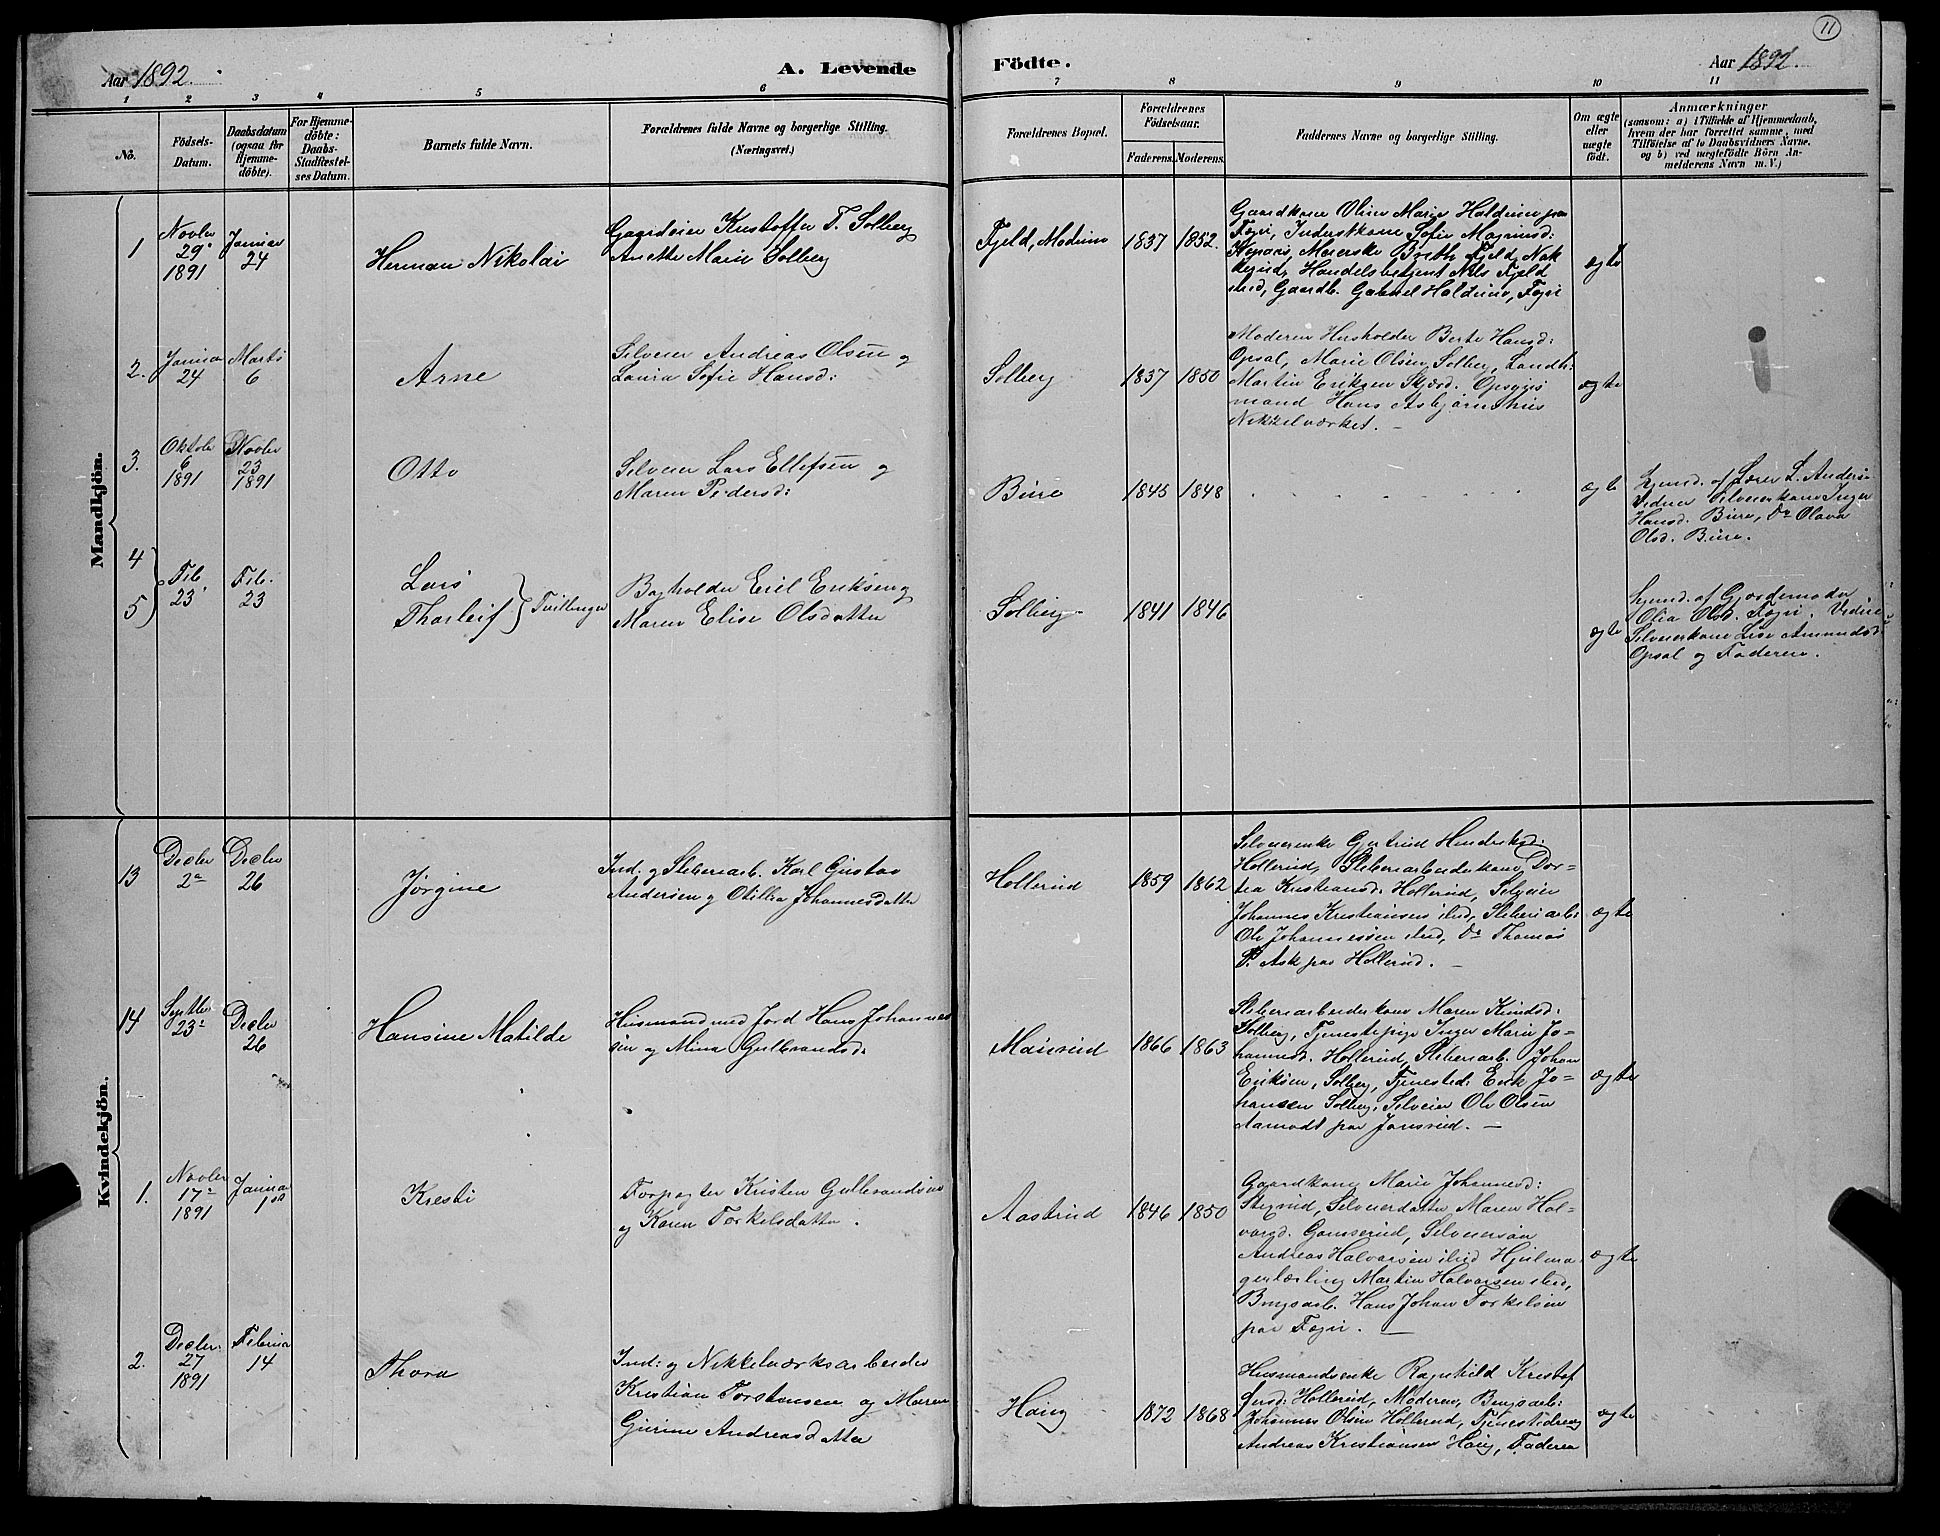 11
Aar 1892.
A. Levende Födte.
Aar 1892.
1 2 3 4 5 6 7 8 9 10 11
No.
Födsels-
Datum.
Daabsdatum
(ogsaa for
Hjemme-
döbte).
For Hjemme-
döbte:
Daabs-
Stadfæstel-
ses Datum.
Barnets fulde Navn.
Forældrenes fulde Navne og borgerlige Stilling.
(Næringsvei.)
Forældrenes Bopæl.
Forældrenes
Födselsaar.
Faderens. Moderens.
Faddernes Navne og borgerlige Stilling.
Om ægte
eller
uægte
födt.
Anmærkninger
(saasom: a) i Tilfælde af Hjemmedaab,
hvem der har forrettet samme, med
Tilföielse af to Daabsvidners Navne,
og b) ved uægtefödte Börn An-
melderens Navn m. V.)
Mandkjön.
1
Novbr
29
1891
Januar
24
Herman Nikolai
Gaardeier Kristoffer T. Solberg
Anette Marie Solberg
Fjeld, Modum
1837 1852.
Gaardkone Oline Marie Haldrine paa
Marie
Berthe Fjeld, Nak
kerud, Handelsbetjent Nils Fjeld
sted, Gaardb. Gabriel
ægte
2.
Januar
24
Marts
6
Arne
Selveier Andreas Olsen og
Laura Sofie Hansd:
Solberg
1837 1850
Moderen Husholder Berte Hansd:
Opsal, Marie Olsen Solberg, Landh:
Martin Eriksen Opsyns
mand Hans Asbjørnshus
Nikkelværket. –
ægte
3.
Oktobr
6
1891
Novbr
23
1891
Otto
Selveier Lars Ellefsen og
Maren Pedersd:
Bure
1845 1848
ægte
Hjemd. af Lærer L. Anders:
Vidner Selveierkone Inger
Hansd. Bure, Do Olava
Olsd. Bure.
4
5
Feb
23
Feb.
23
Lars
Tharleif } Tvillinger
Eriksen og
Maren Elise Olsdatter
Solberg
1841 1846
ægte
Hjemd. af Gjordemoder
Olia Olsd. Vidner
Selveierkone Lise Amundsd
Opsal og Faderen.
Kvindekjön.
13
Decbr
2
Decbr
26
Jørgine
Ind. og Sliberiarb. Karl Gustav
Andersen og Otillia Johannesdatter
Hollerud
1859 1862
Selveierenke Gjertrud
Hollerud, Sliberiarbeiderkone Dor-
tea Kristiansd: Hollerud, Selveier
Johannes Kristiansen ibid, Sliberiarb:
Ole Johannessen ibid, Do Thomas
P. Ask paa Hollerud. –
ægte
14
Septbr
23
Decbr
26
Hansine Matilde
Husmand med Jord Hans Johannes
sen og Mina Gulbrandsd:
Maurud
1866 1863
Sliberiarbeiderkone Maren Knudsd:
Solberg, Tjenestepige Inger Marie Jo-
hannesd. Hollerud, Sliberiarb. Johan
Eriksen, Solberg, Tjenested: Erik Jo-
hansen Solberg, Selveier Ole Olsen
Aamodt paa Jonsrud. –
ægte
1.
Novbr
17
1891
Januar
1
Kresti
Forpagter Kristen Gulbrandsen
og Karen Torkelsdatter.
Aastrud
1846 1850
Gaardkone Marie Johannesd:
Selveierdatter Maren Hal-
vorsd. Selveiersøn
Andreas Halvorsen ibid Hjulma
gerlærling Martin Halvorsen ibid,
Brugsarb. Hans Johan Torkelsen
paa
ægte
2.
Decbr.
27
1891
Februar
14
Thora
Ind: og Nikkelværksarbeider
Kristian Torstensen og Maren
Gurine Andreasdatter
Haug
1872 1868
Husmandsenke Ragnhild Kristof
fersd: Hollerud, Moderen, Brugsarb:
Johannes Olsen Hollerud, Tjenestedreng
Andreas Kristiansen Haug, Faderen
ægte